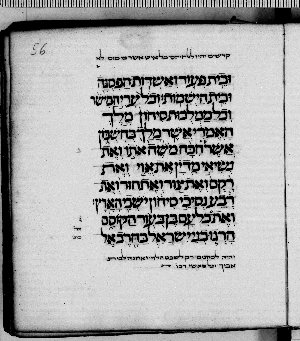 56
קדשים יהיו לאלהיהם כל איש אשר בו מום לא
ובית פעור ואשדות הפסגה
ובית הישמות וכל ערי המישר
וכל ממלכות סיחון מלך
האמרי אשר מלך בחשבון
אשר הכה משה אתו ואת
נשיאי מדין את אוי ואת
רקם ואת צור ואת חור ואת
רבע נסיכי סיחון ישבי הארץ
ואת בלעם בן בעור הקוסם
הרגו בני ישראל בחרב אל